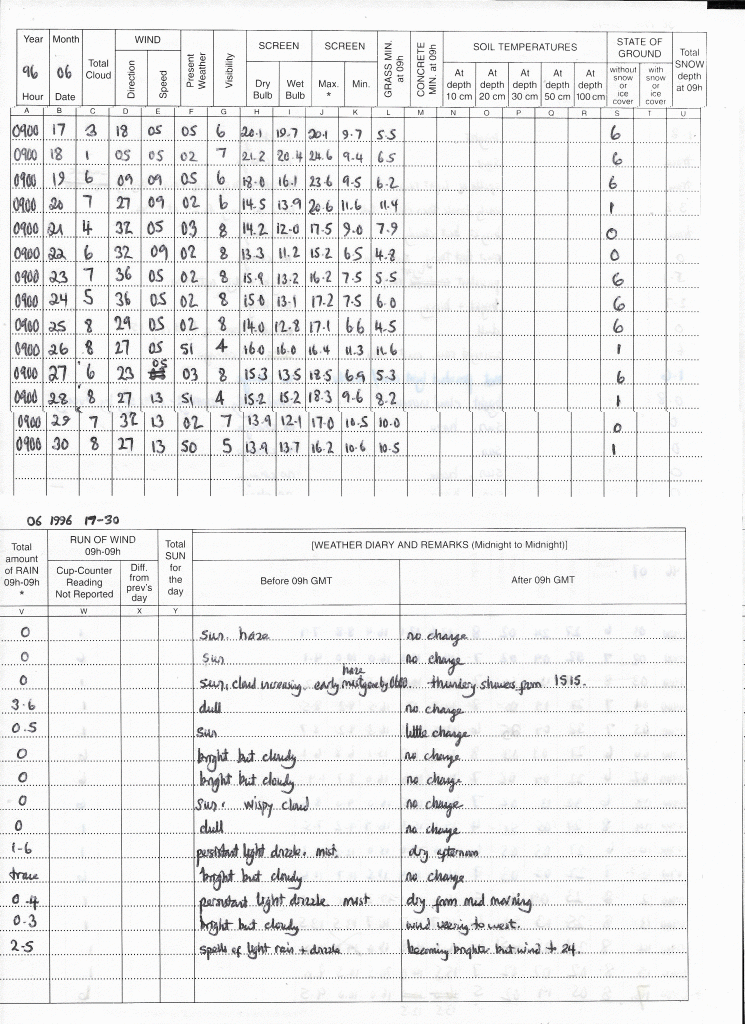 Year Month Total Cloud WIND Present Weather Visibility SCREEN SCREEN GRASS MIN. at 09h CONCRETE MIN. at 09h SOIL TEMPERATURES STATE OF GROUND Total SNOW depth at 09h
96 06 Direction Speed Dry Bulb Wet Bulb Max. * Min. At depth 10 cm At depth 20 cm At depth 30 cm At depth 50 cm At depth 100 cm without snow or ice cover with snow or ice cover
Hour Date
A B C D E F G H I J K L M N O P Q R S T U
0900 17 3 18 05 05 6 20.1 19.7 20.1 9.7 5.5 6
0900 18 1 05 05 02 7 21.2 20.4 24.6 9.4 6.5 6
0900 19 6 09 09 05 6 18.0 16.1 23.6 9.5 6.2 6
0900 20 7 27 09 02 6 14.5 13.9 20.6 11.6 11.4 1
0900 21 4 32 05 03 8 14.2 12.0 17.5 9.0 7.9 0
0900 22 6 32 09 02 8 13.3 11.2 15.2 6.5 4.8 0
0900 23 7 36 05 02 8 15.9 13.2 16.2 7.5 5.5 6
0900 24 5 36 05 02 8 15.0 13.1 17.2 7.5 6.0 6
0900 25 8 29 05 02 8 14.0 12.8 17.1 6.6 4.5 6
0900 26 8 27 05 51 4 16.0 16.0 16.4 11.3 11.6 1
0900 27 6 23 05 03 8 15.3 13.5 18.5 6.9 5.3 6
0900 28 8 27 13 51 4 15.2 15.2 18.3 9.6 8.2 1
0900 29 7 32 13 02 7 13.9 12.1 17.0 10.5 10.0 0
0900 30 8 27 13 50 5 13.9 13.7 16.2 10.6 10.5 1
06 1996 17-30
Total amount of RAIN 09h-09h * RUN OF WIND 09h-09h Total SUN for the day [WEATHER DIARY AND REMARKS (Midnight to Midnight)]
Cup-Counter Reading Not Reported Diff. from prev's day Before 09h GMT After 09h GMT
V W X Y
0 Sun, haze no change
0 Sun no change
0 Sun, cloud increasing. early mist gone by 0600. haze thundery showers from 1515.
3.6 dull no change
0.5 Sun little change
0 bright but cloudy no change
0 bright but cloudy no change
0 Sun. wispy cloud no change
0 dull no change
1.6 persistant light drizzle. mist. dry afternoon
trace bright but cloudy no change
0.4 persistant light drizzle mist dry from mid morning
0.3 bright but cloudy wind veering to west.
2.5 spells of light rain + drizzle becoming brighter but wind → 24.